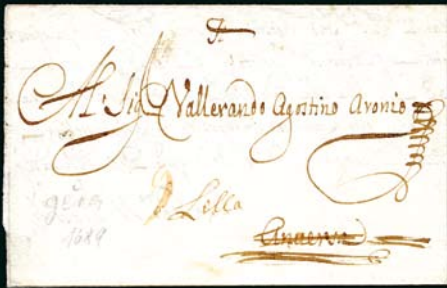 Al Sig Vallerando Agostino Aronio
Lilla
Anversa
1689